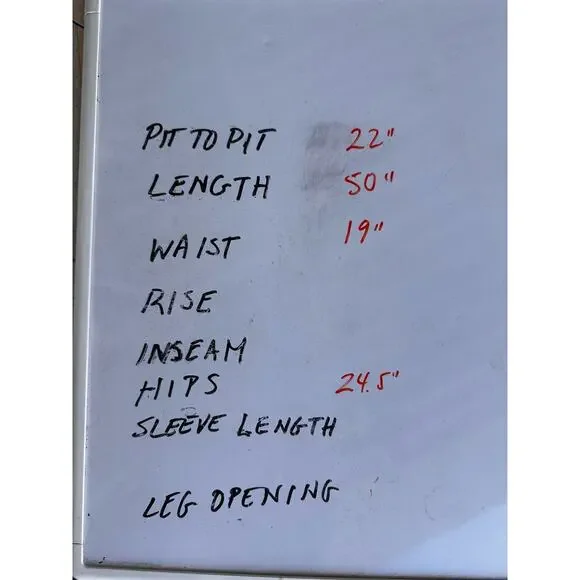 PIT TO PIT 22"
LENGTH 50"
WAIST 19"
RISE
INSEAM
HIPS 24.5"
SLEEVE LENGTH
LEG OPENING